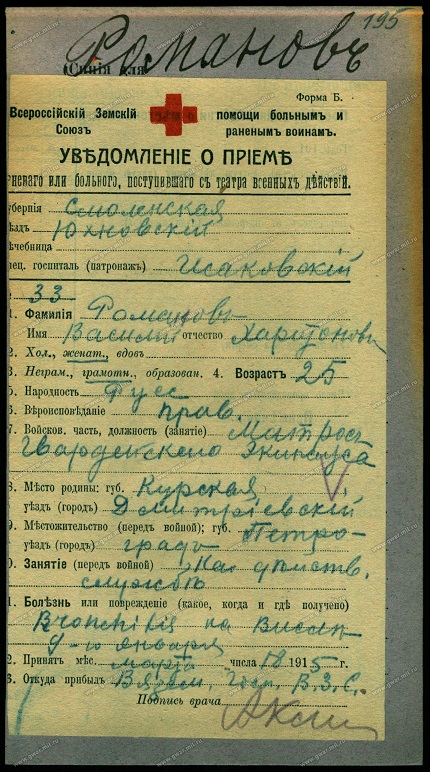 195
Романовъ
(Синія для
Форма Б.
Всероссійскій Земскій
Союзъ
помощи больнымъ и
раненымъ воинамъ.
УВѢДОМЛЕНІЕ О ПРІЕМѢ
неваго или больного, поступившаго съ театра военныхъ дѣйствій.
губернія Смоленская
ѣздъ Юхновскій
ѣчебница
пец. госпиталь (патронажъ) Исаковскій
33
1. Фамилія Романовъ
Имя Василій отчество Харитоновъ
2. Хол., женат., вдовъ.
3. Неграм., грамотн., образован. 4. Возрастъ 25
5. Народность Русс
6. Вѣроисповѣданіе прав.
7. Войсков. часть, должность (занятіе) Матросъ
Гвардейскаго Экипажа
8. Мѣсто родины: губ. Курская
уѣздъ (городъ) Дмитріевскій
9. Мѣстожительство (передъ войной); губ. Петро-
уѣздъ (городъ) градъ
0. Занятіе (передъ войной) На дѣйств.
службѣ
1. Болѣзнь или поврежденіе (какое, когда и гдѣ получено)
Bronchitis на
9-го января
2. Принятъ мѣс. марта числа 18 1915 г.
3. Откуда прибылъ Вязем. Госп. В.З.С.
Подпись врача